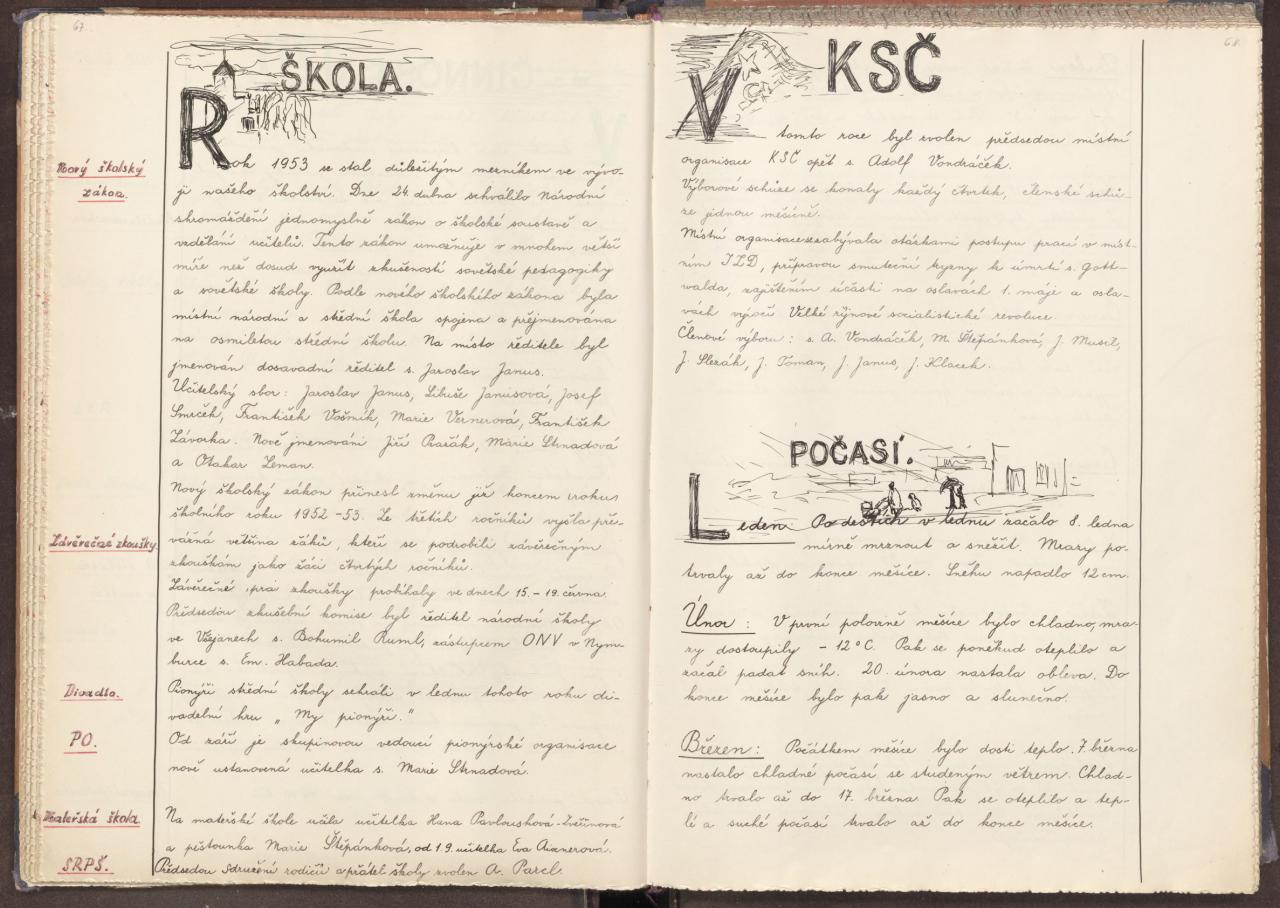 67.
ŠKOLA.
Nový školský
zákon.
Rok 1953 se stal důležitým mezníkem ve vývo-
ji našeho školství. Dne 24. dubna schválilo Národní
shromáždění jednomyslně zákon o školské soustavě a
vzdělání učitelů. Tento zákon umožňuje v mnohem větší
míře než dosud využít zkušeností sovětské pedagogiky
a sovětské školy. Podle nového školského zákona byla
místní národní a střední škola spojena a přejmenována
na osmiletou střední školu. Na místo ředitele byl
jmenován dosavadní ředitel s. Jaroslav Janus.
Učitelský sbor: Jaroslav Janus, Libuše Janusová, Josef
Smrček, František Vošmik, Marie Vernerová, František
Závorka. Nově jmenováni Jiří Pražák, Marie Strnadová
a Otakar Zeman.
Nový školský zákon přinesl změnu již koncem roku
školního roku 1952-53. Ze třetích ročníků vyšla pře-
Závěrečné zkoušky.
vážná většina žáků, kteří se podrobili závěrečným
zkouškám jako žáci čtvrtých ročníků.
Závěrečné zkoušky probíhaly ve dnech 15.-19. června.
Předsedou zkušební komise byl ředitel národní školy
ve Všejanech s. Bohumil Ruml, zástupcem ONV v Nym-
burce s. Em. Habada.
Divadlo.
Pionýři střední školy sehráli v lednu tohoto roku di-
vadelní hru „My pionýři."
PO.
Od září je skupinovou vedoucí pionýrské organisace
nově ustanovená učitelka s. Marie Strnadová.
Mateřská škola.
Na mateřské škole učila učitelka Hana Pavloušková-Zvěřinová
a pěstounka Marie Štěpánková, od 1.9. učitelka Eva
SRPŠ.
Předsedou Sdružení rodičů a přátel školy zvolen A. Parcl.
68.
KSČ
V tomto roce byl zvolen předsedou místní
organisace KSČ opět s. Adolf Vondráček.
Výborové schůze se konaly každý čtvrtek, členské schů-
ze jednou měsíčně.
Místní organisace se zabývala otázkami postupu prací v míst-
ním JZD, přípravou smuteční tryzny k úmrtí s. Gott-
walda, zajištěním účasti na oslavách 1. máje a osla-
vách výročí Velké říjnové socialistické revoluce.
Členové výboru: s. A. Vondráček, M. Štěpánková, J. Musil,
J. Slezák, J. Toman, J. Janus, J. Klacek.
POČASÍ.
Leden Po deštích v lednu začalo 8. ledna
mírně mrznout a sněžit. Mrazy po-
trvaly až do konce měsíce. Sněhu napadlo 12 cm.
Únor: V první polovině měsíce bylo chladno, mra-
zy dostoupily -12°C. Pak se poněkud oteplilo a
začal padat sníh. 20. února nastala obleva. Do
konce měsíce bylo pak jasno a slunečno.
Březen: Počátkem měsíce bylo dosti teplo. 7. března
nastalo chladné počasí se studeným větrem. Chlad-
no trvalo až do 17. března. Pak se oteplilo a tep-
lé a suché počasí trvalo až do konce měsíce.